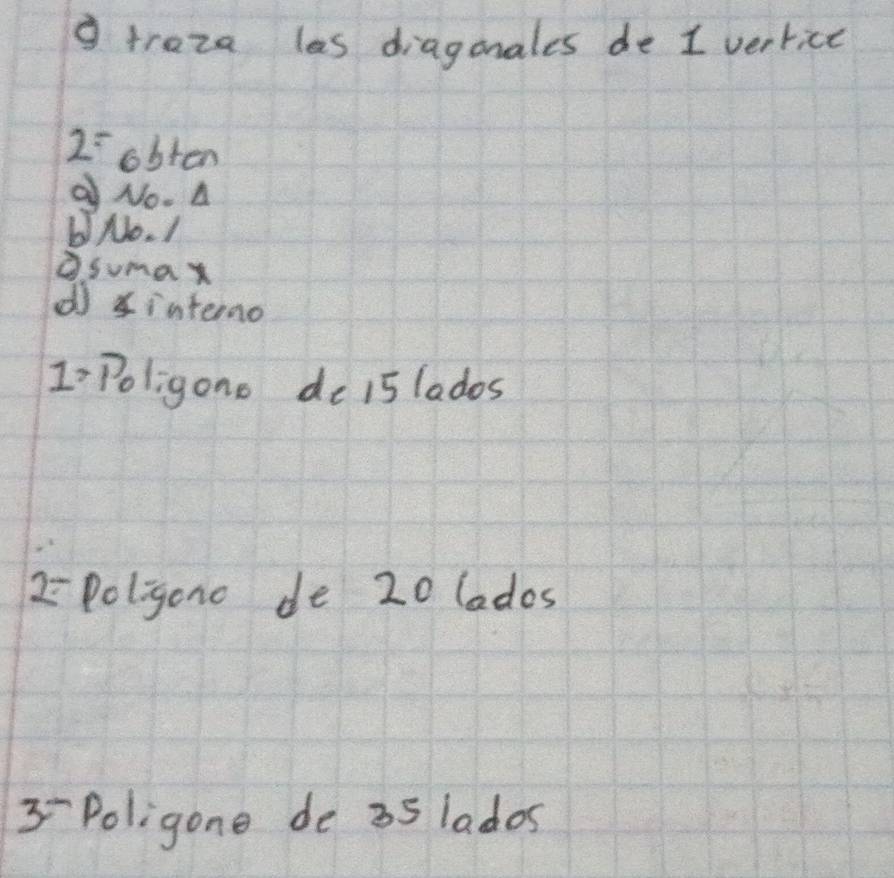 a) traza las diagonales de 1 vertice
2- obten
a) No. Δ
b) No. /
c) suma ∡
d) ∡ interno
1- Poligono de 15 lados
2- Poligono de 20 lados
3- Poligono de 35 lados